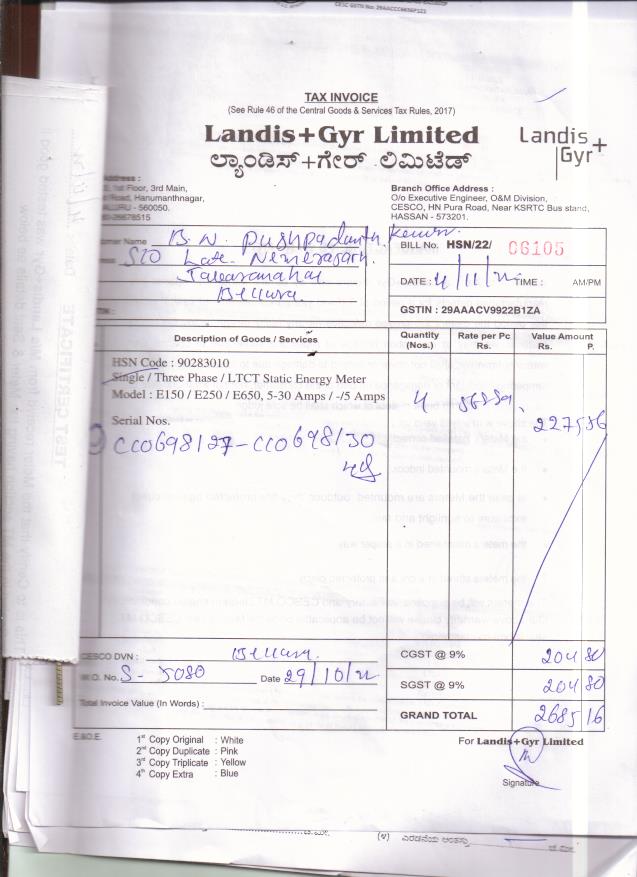 CESC GSTN No: 29AACCC
TAX INVOICE
(See Rule 46 of the Central Goods & Services Tax Rules, 2017)
Landis+Gyr Limited
ಲ್ಯಾಂಡಿಸ್+ಗೇರ್ ಲಿಮಿಟೆಡ್
Landis+
Gyr
Address :
1st Floor, 3rd Main,
Road, Hanumanthnagar,
- 560050.
26678515
Branch Office Address :
O/o Executive Engineer, O&M Division,
CESCO, HN Pura Road, Near KSRTC Bus stand,
HASSAN - 573201.
Name B.N. Pushpadanth Kumar
S/o Late. Nemerajaiah
Bellura
BILL No. HSN/22/ 06105
DATE : 4/11/22 TIME : AM/PM
GSTIN : 29AAACV9922B1ZA
Description of Goods / Services
Quantity (Nos.)
Rate per Pc Rs.
Value Amount Rs. P.
HSN Code : 90283010
Single / Three Phase / LTCT Static Energy Meter
Model : E150 / E250 / E650, 5-30 Amps / -/5 Amps
4 568.84 2275 36
Serial Nos.
CC0698127-CC0698130
CESCO DVN : Bellura
W.O. No. S-5080 Date 29/10/22
Total Invoice Value (In Words) :
CGST @ 9% 204 80
SGST @ 9% 204 80
GRAND TOTAL 2685 16
E.&O.E.
1st Copy Original : White
2nd Copy Duplicate : Pink
3rd Copy Triplicate : Yellow
4th Copy Extra : Blue
For Landis+Gyr Limited
Signature